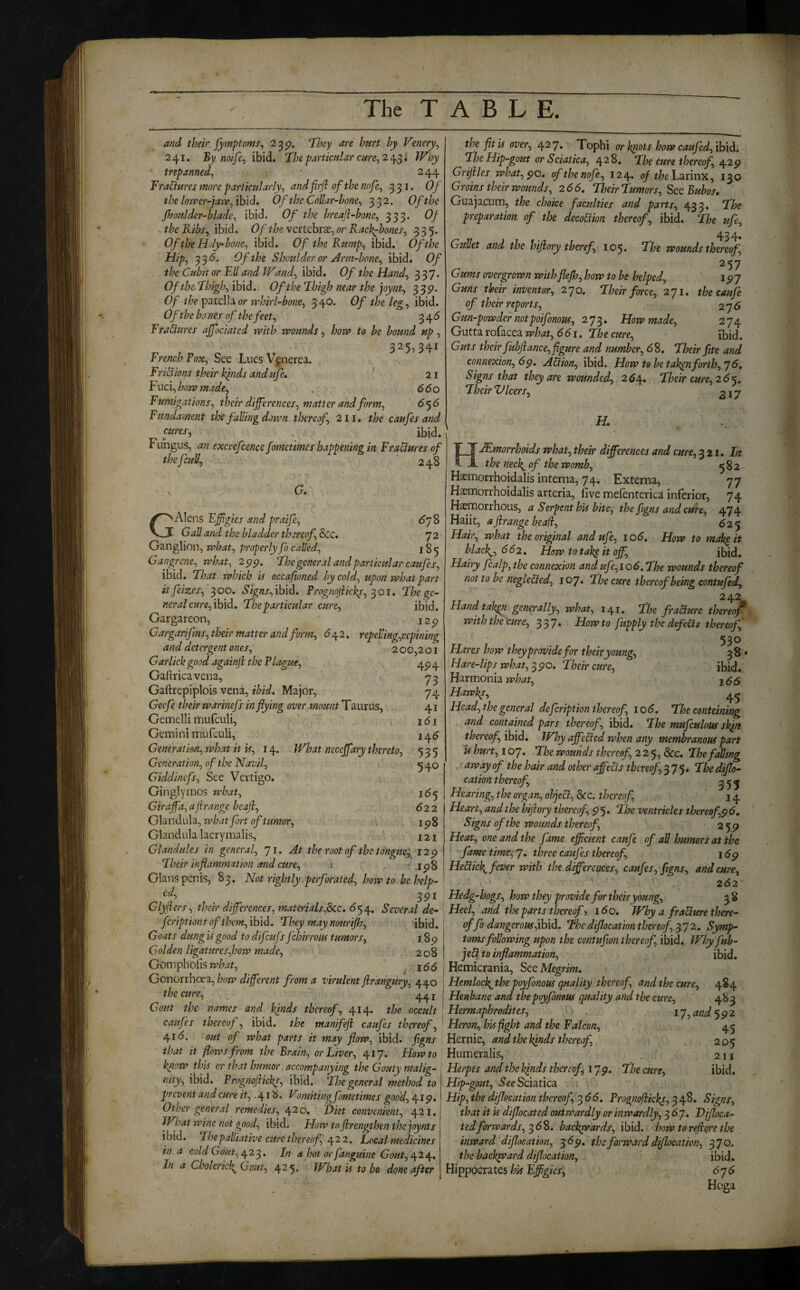 The TABLE.
and their symptoms, 239. They are hurt by Venery,
241. By noise, ibid. The particular cure, 243. Why
trepanned, 244
Fractures more particularly, and first of the nose, 331. Of
the lower-jaw, ibid. Of the Collar-bone, 332. Of the
shoulder-blade, ibid. Of the breast-bone, 333. Of
the Ribs, ibid. Of the vertebræ, or Rack-bones, 335.
Of the Holy-bone, ibid. Of the Rump, ibid. Of the
Hip, 336. Of the Shoulder or Arm-bone, ibid. Of
the Cubit or Ell and Wand, ibid. Of the Hand, 337.
Of the Thigh, ibid. Of the Thigh near the joynt, 339.
Of the patella or whirl-bone, 340. Of the leg, ibid.
Of the bones of the feet, 346
Fractures associated with wounds, how to be bound up,
325, 341
French Pox, See Lues Venerea.
Frictions their kinds and use. 21
Fuci, how made, 660
Fumigations, their differences, matter and form, 656
Fundament the falling down thereof, 211. the causes and
cures, ibid.
Fungus, an excrescence sometimes happening in Fractures of
the scull, 248
G.
GAlens Effigies and praise, 678
Gall and the bladder thereof, &c. 72
Ganglion, what, properly so called, 185
Gangrene, what, 299. The general and particular causes,
ibid. That which is occasioned by cold, upon what part
it seizes, 300. Signs, ibid. Prognosticks, 301. The ge-
neral cure, ibid. The particular cure, ibid.
Gargareon, 129
Gargarisms, their matter and form, 642. repelling, repining
and detergent ones, 200,201
Garlick good against the Plague, 494
Gastrica vena, 73
Gastrepiplois vena, ibid. Major, 74
Geese their wariness in flying over mount Taurus, 41
Gemelli musculi, 161
Gemini musculi, 146
Generation, what it is, 14. What necessary thereto, 535
Generation, of the Navil, 540
Giddiness, See Vertigo.
Ginglymos what, 165
Giraffa, a strange beast, 622
Glandula, what sort of tumor, 198
Glandula lacrymalis, 121
Glandules in general, 71. At the root of the tongue, 129
Their inflammation and cure, 198
Glans penis, 83. Not rightly perforated, how to be help-
ed, 391
Glysters, their differences, materials, &c. 654. Several de-
scriptions of them, ibid. They may nourish, ibid.
Goats dung is good to discuss schirrous tumors, 189
Golden ligatures, how made, 208
Gomphosis what, 166
Gonorrhoea, how different from a virulent strangury, 440
the cure, 441
Gout the names and kinds thereof, 414. the occult
causes thereof, ibid. the manifest causes thereof,
416. out of what parts it may flow, ibid. signs
that it flows from the Brain, or Liver, 417. How to
know this or that humor accompanying the Gouty malig-
nity, ibid. Prognosticks, ibid. The general method to
prevent and cure it, 418. Vomiting sometimes good, 419.
Other general remedies, 420. Diet convenient, 421.
What wine not good, ibid. How to strengthen the joynts
ibid. The palliative cure thereof, 422. Local medicines
in a cold Gout, 423. In a hot or sanguine Gout, 424.
In a Cholerick Gout, 425. What is to be done after
the fit is over, 427. Tophi or knots how caused, ibid.
The Hip-gout or Sciatica, 428. The cure thereof, 429
Gristles what, 90. of the nose, 124. of the Larinx, 130
Groins their wounds, 266. Their Tumors, See Bubos.
Guajacum, the choice faculties and parts, 433. The
preparation of the decoction thereof, ibid. The use,
434.
Gullet and the history theref, 105. The wounds thereof,
257
Gums overgrown with flesh, how to be helped, 197
Guns their inventor, 270. Their force, 271. the cause
of their reports, 276
Gun-powder not poisonous, 273. How made, 274
Gutta rosacea what, 661. The cure, ibid.
Guts their substance, figure and number, 68. Their site and
connexion, 69. Action, ibid. How to be taken forth, 76.
Signs that they are wounded, 264. Their cure, 265.
Their Vlcers, 317
H.
HÆmorrhoids what, their differences and cure, 321. In
the neck of the womb, 582
Hæmorrhoidalis interna, 74. Externa, 77
Hæmorrhoidalis arteria, five mesenterica inferior, 74
Hæmorrhous, a Serpent his bite, the signs and cure, 474
Haiit, a strange beast, 625
Hair, what the original and use, 106. How to make it
black, 662. How to take it off, ibid.
Hairy scalp, the connexion and use, 106. The wounds thereof
not to be neglected, 107. The cure thereof being contused,
242
Hand taken generally, what, 141. The fracture thereof
with the cure, 337. How to supply the defects thereof,
530
Hares how they provide for their young, 38
Hare-lips what, 390. Their cure, ibid.
Harmonia what, 166
Hawks, 45
Head, the general description thereof, 106. The conteining
and contained pars thereof, ibid. The musculous skin
thereof, ibid. Why affected when any membranous part
is hurt, 107. The wounds thereof, 225, &c. The falling
away of the hair and other affects thereof, 375. The dislo-
cation thereof, 353
Hearing, the organ, object, &c. thereof, 14
Heart, and the history thereof, 95. The ventricles thereof, 96.
Signs of the wounds thereof, 259
Heat, one and the same efficient cause of all humors at the
same time, 7. three causes thereof, 169
Hectick fever with the differences, causes, signs, and cure,
262
Hedg-hogs, how they provide for their young, 38
Heel, and the parts thereof, 160. Why a fracture there-
of so dangerous, ibid. The dislocation thereof, 372. Symp-
toms following upon the contusion thereof, ibid. Why sub-
ject to inflammation, ibid.
Hemicrania, See Megrim.
Hemlock the poysonous quality thereof, and the cure, 484
Henbane and the poysonous quality and the cure, 483
Hermaphrodites, 17, and 592
Heron, his fight and the Falcon, 45
Hernie, and the kinds thereof, 205
Humeralis, 211
Herpes and the kinds thereof, 179. The cure, ibid.
Hip-gout, See Sciatica
Hip, the dislocation thereof, 366. Prognosticks, 348. Signs,
that it is dislocated outwardly or inwardly, 367. Disloca-
ted forwards, 368. backwards, ibid. how to restore the
inward dislocation, 369. the forward dislocation, 370.
the backward dislocation, ibid.
Hippocrates his Effigies, 676
Hoga